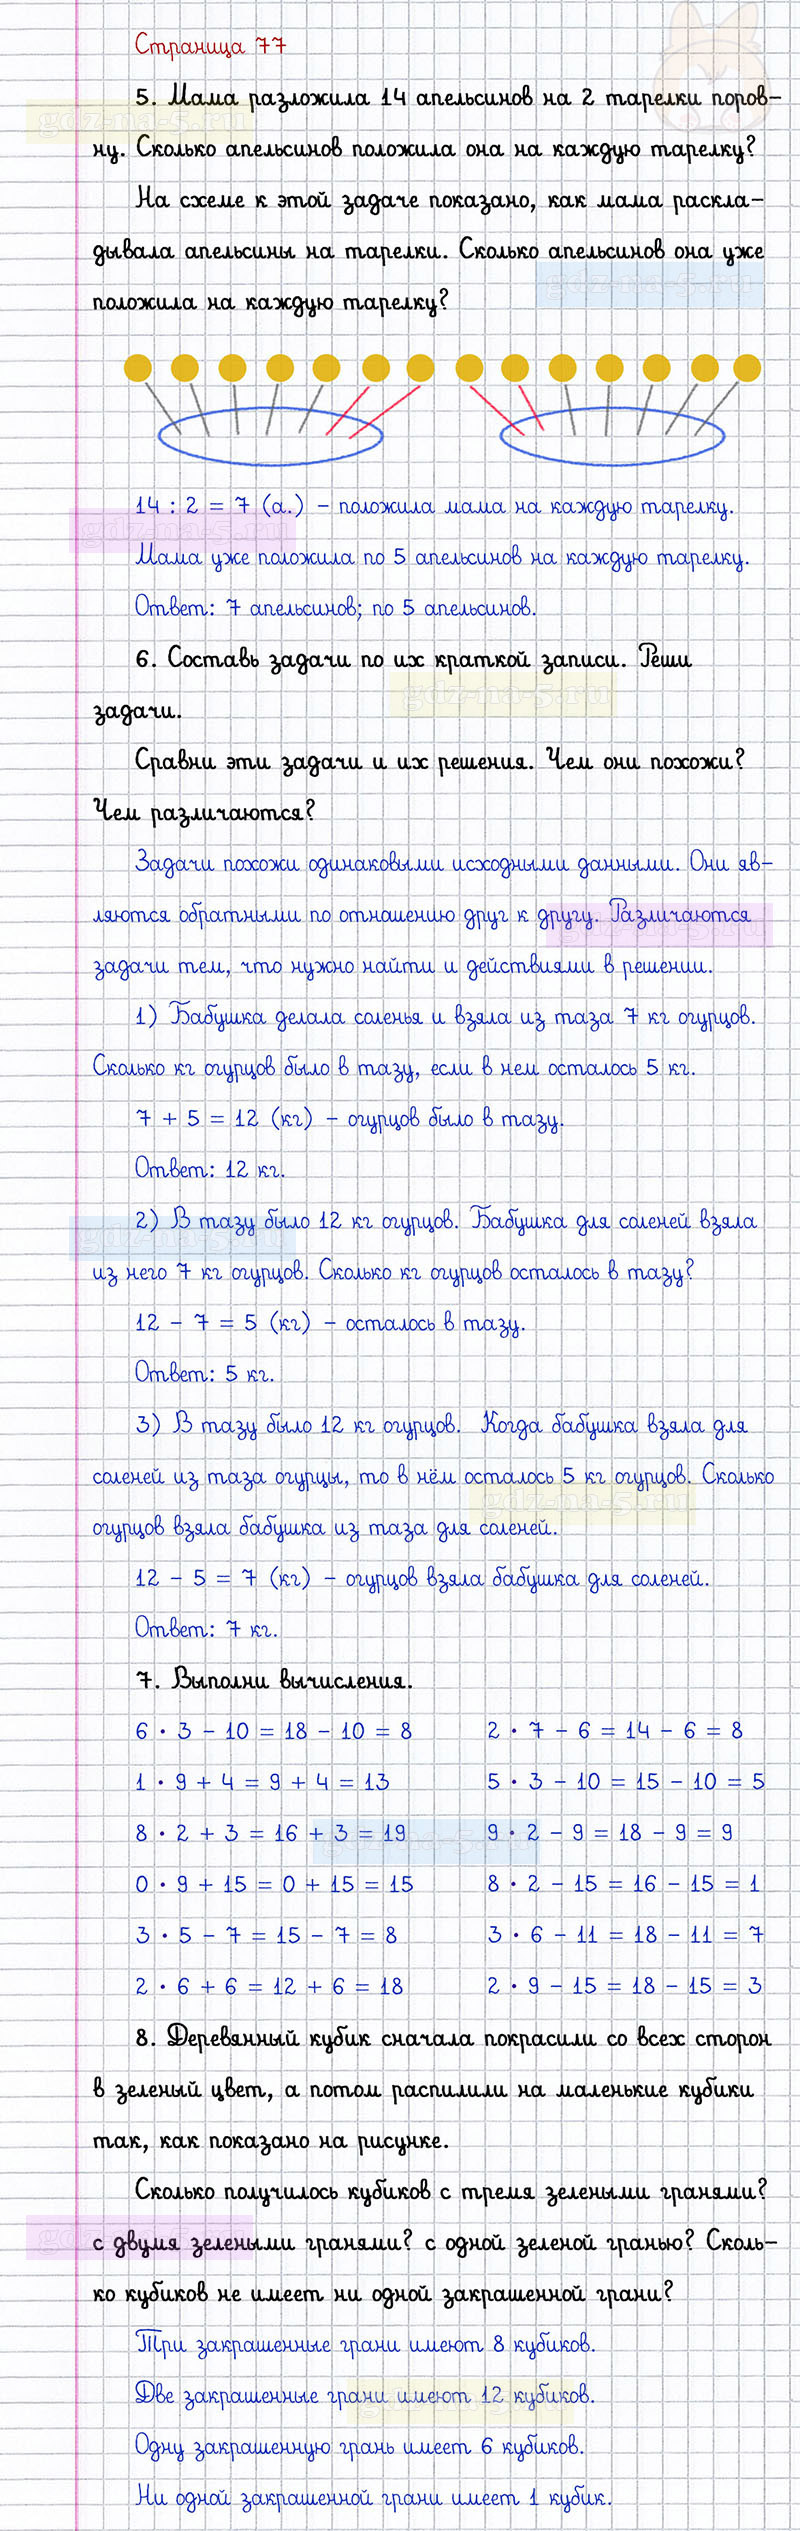 Страница 77
5. Мама разложила 14 апельсинов на 2 тарелки поров-
ну. Сколько апельсинов положила она на каждую тарелку?
На схеме к этой задаче показано, как мама раскла-
дывала апельсины на тарелки. Сколько апельсинов она уже
положила на каждую тарелку?
14 : 2 = 7 (а.) – положила мама на каждую тарелку.
Мама уже положила по 5 апельсинов на каждую тарелку.
Ответ: 7 апельсинов; по 5 апельсинов.
6. Составь задачи по их краткой записи. Реши
задачи.
Сравни эти задачи и их решения. Чем они похожи?
Чем различаются?
Задачи похожи одинаковыми исходными данными. Они яв-
ляются обратными по отношению друг к другу. Различаются
задачи тем, что нужно найти и действиями в решении.
1) Бабушка делала соленья и взяла из таза 7 кг огурцов.
Сколько кг огурцов было в тазу, если в нем осталось 5 кг.
7 + 5 = 12 (кг) – огурцов было в тазу.
Ответ: 12 кг.
2) В тазу было 12 кг огурцов. Бабушка для соленей взяла
из него 7 кг огурцов. Сколько кг огурцов осталось в тазу?
12 – 7 = 5 (кг) – осталось в тазу.
Ответ: 5 кг.
3) В тазу было 12 кг огурцов. Когда бабушка взяла для
соленей из таза огурцы, то в нём осталось 5 кг огурцов. Сколько
огурцов взяла бабушка из таза для соленей.
12 – 5 = 7 (кг) – огурцов взяла бабушка для соленей.
Ответ: 7 кг.
7. Выполни вычисления.
6 · 3 – 10 = 18 – 10 = 8 2 · 7 – 6 = 14 – 6 = 8
1 · 9 + 4 = 9 + 4 = 13 5 · 3 – 10 = 15 – 10 = 5
8 · 2 + 3 = 16 + 3 = 19 9 · 2 – 9 = 18 – 9 = 9
0 · 9 + 15 = 0 + 15 = 15 8 · 2 – 15 = 16 – 15 = 1
3 · 5 – 7 = 15 – 7 = 8 3 · 6 – 11 = 18 – 11 = 7
2 · 6 + 6 = 12 + 6 = 18 2 · 9 – 15 = 18 – 15 = 3
8. Деревянный кубик сначала покрасили со всех сторон
в зеленый цвет, а потом распилили на маленькие кубики
так, как показано на рисунке.
Сколько получилось кубиков с тремя зелеными гранями?
с двумя зелеными гранями? с одной зеленой гранью? Сколь-
ко кубиков не имеет ни одной закрашенной грани?
Три закрашенные грани имеют 8 кубиков.
Две закрашенные грани имеют 12 кубиков.
Одну закрашенную грань имеет 6 кубиков.
Ни одной закрашенной грани имеет 1 кубик.
gdz-na-5.ru
gdz-na-5.ru
gdz-na-5.ru
gdz-na-5.ru
gdz-na-5.ru
gdz-na-5.ru
gdz-na-5.ru
gdz-na-5.ru
gdz-na-5.ru
gdz-na-5.ru